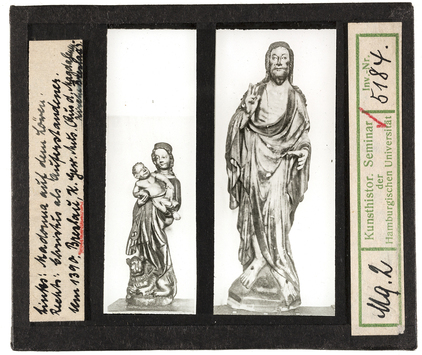 Links: Madonna auf dem Löwen.
Rechts: Christus als Auferstandener.
Um 1390. Breslau, K.
Kunsthistor. Seminar
der
Hamburgischen Universität
Inv.-Nr.
5184.
Mg. 2